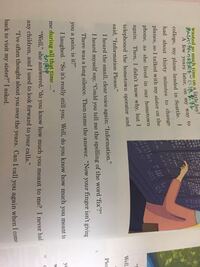 wonder at such
my way
college, my plane landed in Seattle. I
had about thirty minutes to change
plane, so I talked with my sister on the
phone, as she lived in our hometown
again. Then, I didn't know why, but I
telephoned the hometown operator and
said, "Information Please."
I heard the small, clear voice again, "Information."
I heard myself say, "Could you tell me the spelling of the word 'fix'?"
a long silence. Then came the answer. "Now your finger isn't giving
you a pain, is it?"
I laughed. "So it's really still you. Well, do you know how much you meant to
me during all that time ..."
"Well," she answered, "do you know how much you meant to me? I never had
any children, and I used to look forward to your calls."
"I've often thought about you over the years. Can I call you again when I come
back to visit my sister?" I asked.